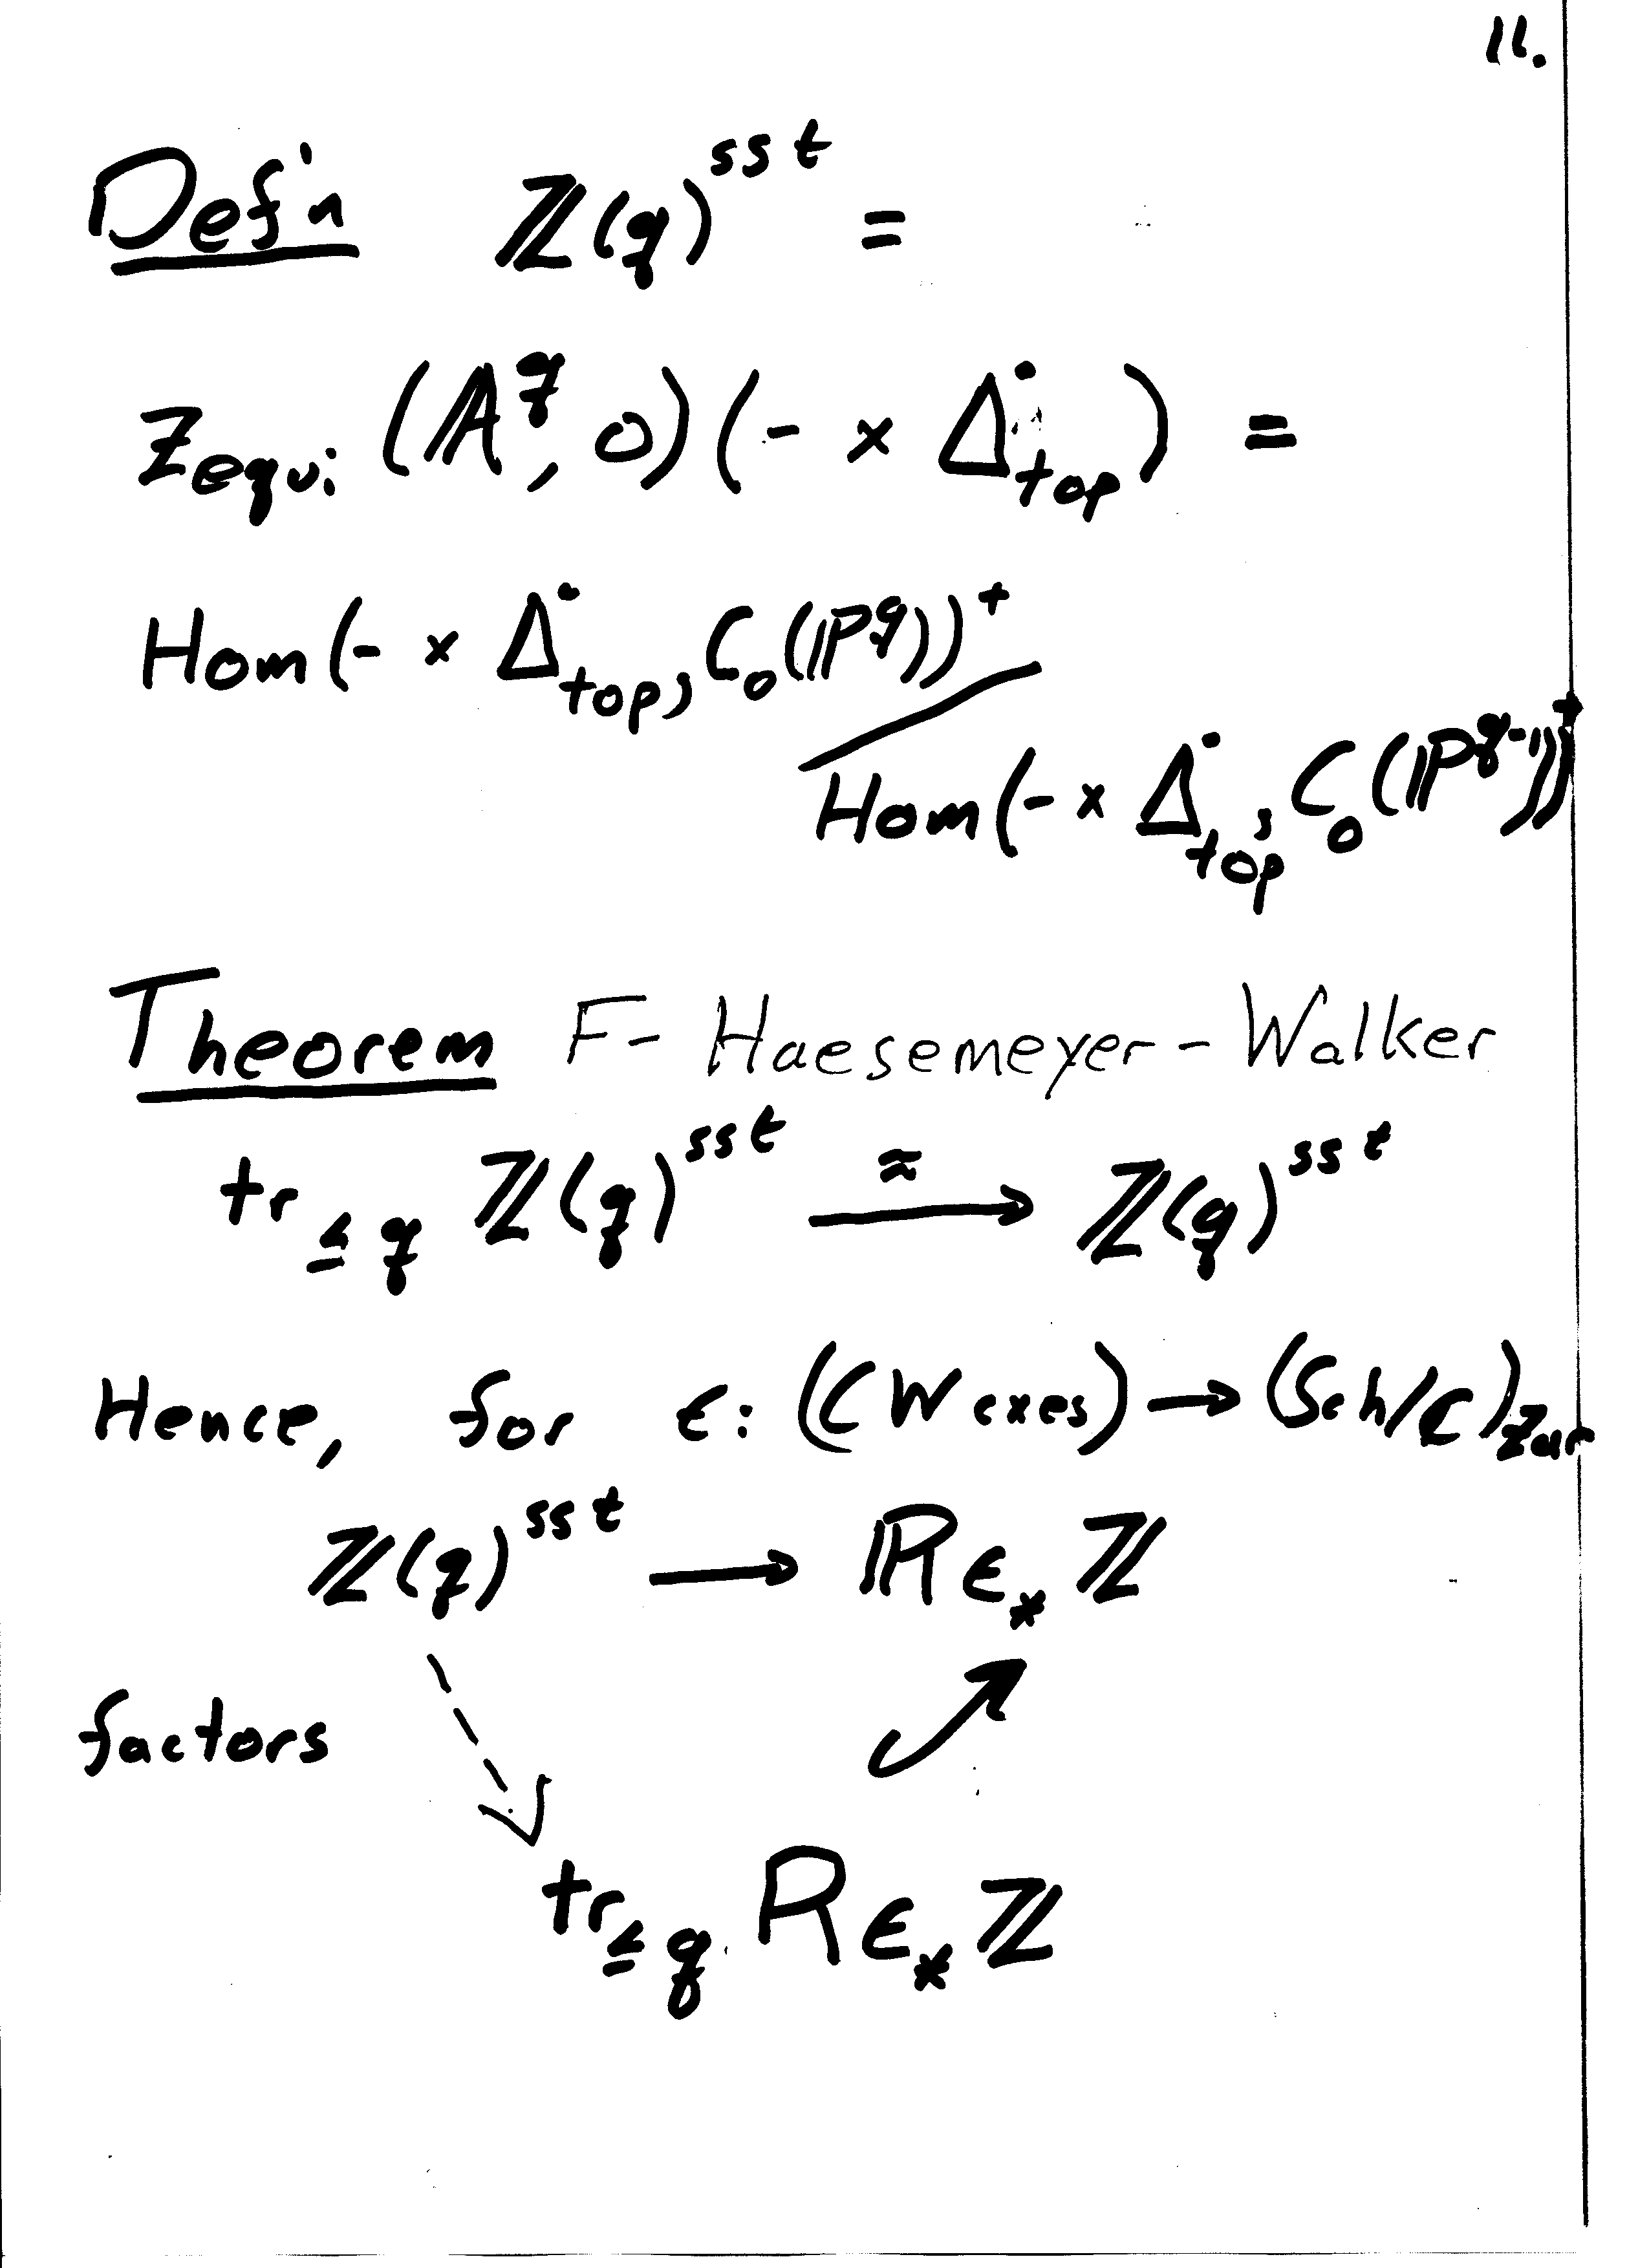 11.
Def'n ℤ(q)^{sst} =
z_{equi}(𝔸^q, 0)(- × Δ^•_{top}) =
Hom(- × Δ^•_{top}, C_0(ℙ^q))^+ /
Hom(- × Δ^•_{top}, C_0(ℙ^{q-1}))^+
Theorem F- Haesemeyer - Walker
tr_{≤q} ℤ(q)^{sst} ⟶^{≃} ℤ(q)^{sst}
Hence, for ϵ: (CW cxes) → (Sch/ℂ)_{Zar}
ℤ(q)^{sst} ⟶ ℝϵ_*ℤ
factors
tr_{≤q} Rϵ_*ℤ